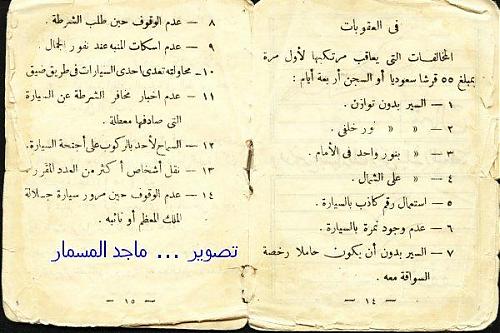 فى العقوبات
المخالفات التى يعاقب مرتكبها لأول مرة
بمبلغ ٥٥ قرشا سعوديا أو السجن أربعة أيام :
١ — السير بدون توازن .
٢ — « « نور خلفى .
٣ — « بنور واحد فى الأمام .
٤ — « على الشمال .
٥ — استعمال رقم كاذب بالسيارة .
٦ — عدم وجود نمرة بالسيارة .
٧ — السير بدون أن يكون حاملا رخصة
السواقة معه .
— ١٤ —
٨ — عدم الوقوف حين طلب الشرطة .
٩ — عدم اسكات المنبه عند نفور الجمال .
١٠ — محاولته تعدى احدى السيارات فى طريق ضيق
١١ — عدم اخبار مخافر الشرطة عن السيارة
التى صادفها معطلة .
١٢ — السماح لأحد بالركوب على أجنحة السيارة .
١٣ — نقل أشخاص أكثر من العدد المقرر
١٤ — عدم الوقوف حين مرور سيارة جلالة
الملك المعظم أو نائبه .
تصوير ... ماجد المسمار
— ١٥ —